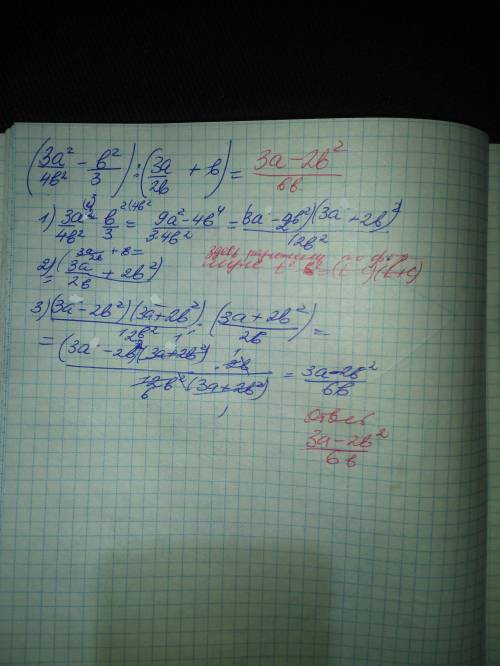 (3a²/4b² − b²/3) : (3a/2b + b) = 3a−2b²/6b
1) 3a²/4b² − b²/3 = 9a²−4b⁴/3·4b² = (3a−2b²)(3a+2b²)/12b²
3a/2b + b =
2) = (3a + 2b²)/2b
3) (3a−2b²)(3a+2b²)/12b² : (3a+2b²)/2b =
= (3a−2b²)(3a+2b²)·2b/12b²(3a+2b²) = 3a−2b²/6b
Ответ
3a−2b²/6b